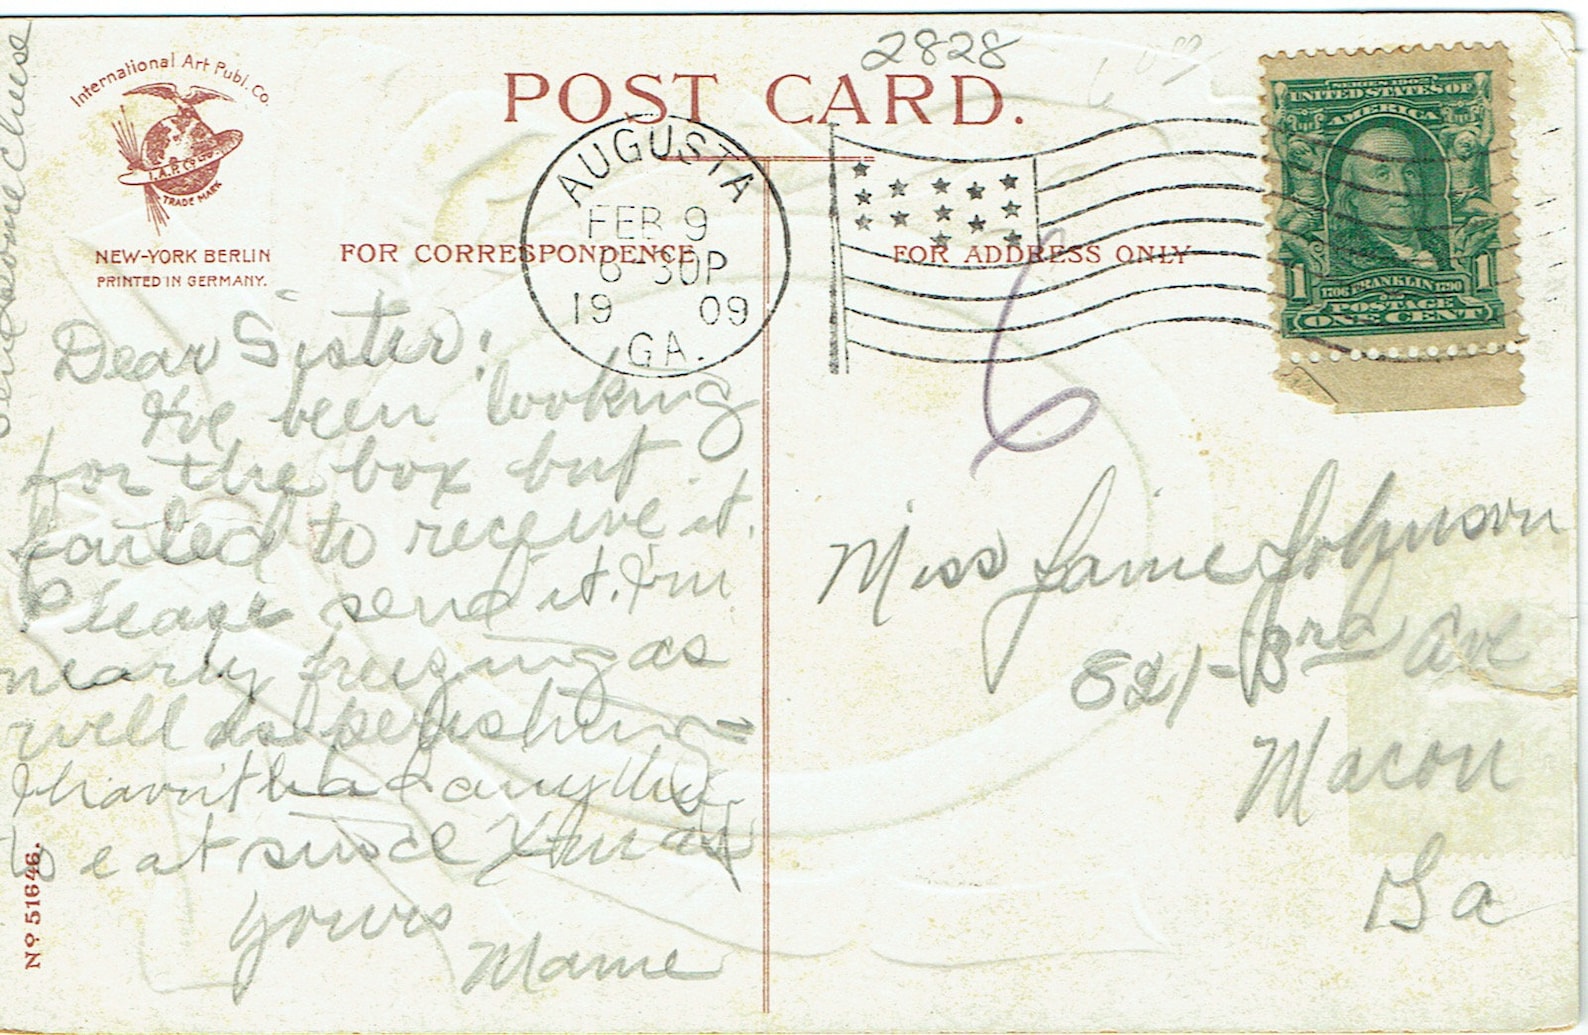 2828
POST CARD.
International Art Publ. Co.
I.A.P. Co.
TRADE MARK
NEW-YORK BERLIN
PRINTED IN GERMANY.
FOR CORRESPONDENCE
FOR ADDRESS ONLY
AUGUSTA
FEB 9
6-30P
19 09
GA.
SERIES 1902
UNITED STATES OF
AMERICA
1 1
1706 FRANKLIN 1790
POSTAGE
ONE CENT
6
Send some cheese
Dear Sister:
I've been looking
for the box but
failed to receive it.
Please send it. I'm
nearly freezing as
well as perishing
I havn't had anything
to eat since Xmas
Yours
Mamie
Miss Janie Johnson
821-3rd Ave
Macon
Ga
No 51646.